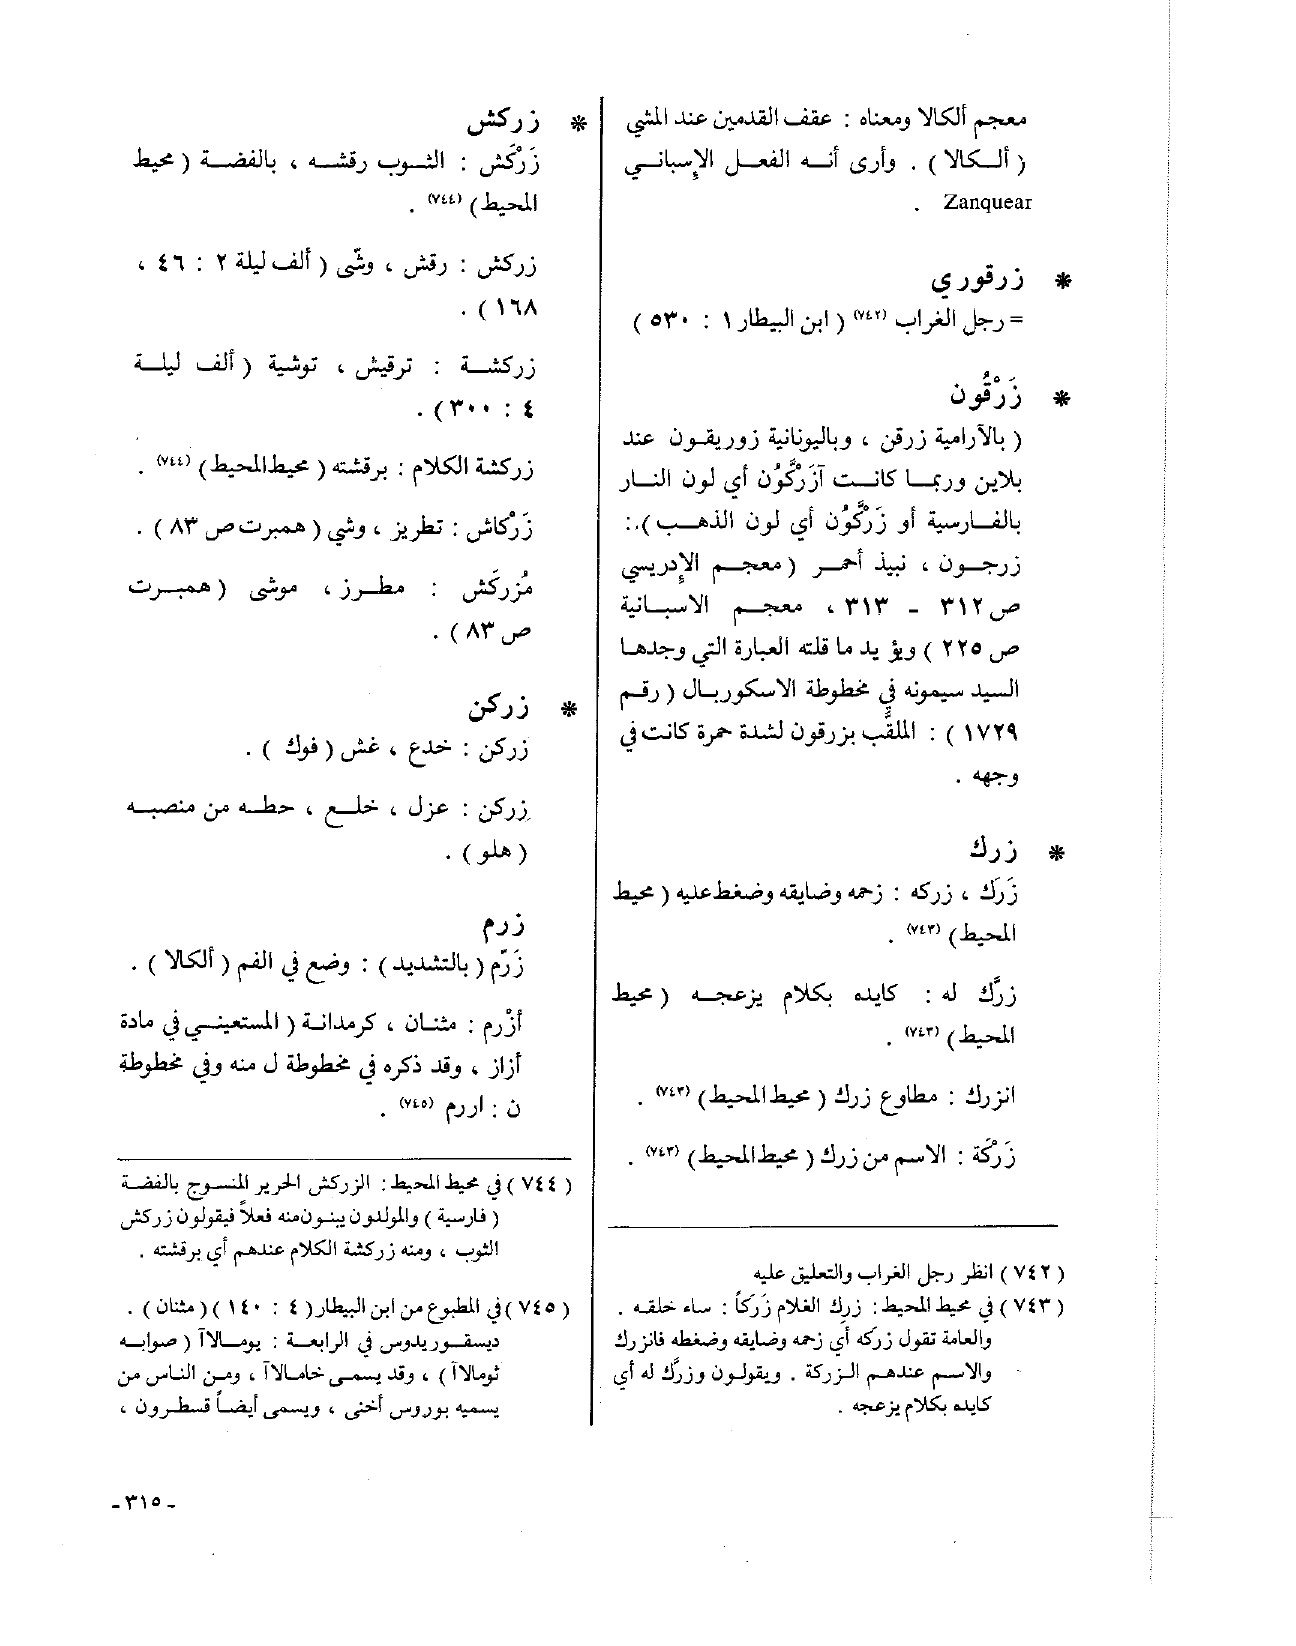 معجم ألكالا ومعناه : عقف القدمين عند المشي
( ألكالا ) . وأرى أنه الفعل الإسباني
Zanquear .
* زرقوري
= رجل الغراب (٧٤٢) ( ابن البيطار ١ : ٥٣٠ )
* زَرْقُون
( بالآرامية زرقن ، وباليونانية زوريقون عند
بلاين وربما كانت آزَرْكُون أي لون النار
بالفارسية أو زَرْكُون أي لون الذهب ).:
زرجون ، نبيذ أحمر ( معجم الإدريسي
ص ٣١٢ - ٣١٣ ، معجم الاسبانية
ص ٢٢٥ ) ويؤيد ما قلته العبارة التي وجدها
السيد سيمونه في مخطوطة الاسكوريال ( رقم
١٧٢٩ ) : الملقَّب بزرقون لشدة حمرة كانت في
وجهه .
* زرك
زَرَك ، زركه : زحمه وضايقه وضغط عليه ( محيط
المحيط ) (٧٤٣) .
زرَّك له : كايده بكلام يزعجه ( محيط
المحيط ) (٧٤٣) .
انزرك : مطاوع زرك ( محيط المحيط ) (٧٤٣) .
زَرْكَة : الاسم من زرك ( محيط المحيط ) (٧٤٣) .
( ٧٤٢ ) انظر رجل الغراب والتعليق عليه
( ٧٤٣ ) في محيط المحيط : زرك الغلام زَرَكاً : ساء خلقه .
والعامة تقول زركه أي زحمه وضايقه وضغطه فانزرك
والاسم عندهم الزركة . ويقولون وزرَّك له أي
كايده بكلام يزعجه .
* زركش
زَرْكَش : الثوب رقشه ، بالفضة ( محيط
المحيط ) (٧٤٤) .
زركش : رقش ، وشّى ( ألف ليلة ٢ : ٤٦ ،
١٦٨ ) .
زركشة : ترقيش ، توشية ( ألف ليلة
٤ : ٣٠٠ ) .
زركشة الكلام : برقشته ( محيط المحيط ) (٧٤٤) .
زَرْكاش : تطريز ، وشي ( همبرت ص ٨٣ ) .
مُزَركَش : مطرز ، موشى ( همبرت
ص ٨٣ ) .
* زركن
زركن : خدع ، غش ( فوك ) .
زركن : عزل ، خلع ، حطه من منصبه
( هلو ) .
زرم
زَرَّم ( بالتشديد ) : وضع في الفم ( ألكالا ) .
أزْرم : مثنان ، كرمدانة ( المستعيني في مادة
أزاز ، وقد ذكره في مخطوطة ل منه وفي مخطوطة
ن : اررم (٧٤٥) .
( ٧٤٤ ) في محيط المحيط : الزركش الحرير المنسوج بالفضة
( فارسية ) والمولدون يبنون منه فعلاً فيقولون زركش
الثوب ، ومنه زركشة الكلام عندهم أي برقشته .
( ٧٤٥ ) في المطبوع من ابن البيطار ( ٤ : ١٤٠ ) ( مثنان ) .
ديسقوريدوس في الرابعة : يومالاآ ( صوابه
ثومالاآ ) ، وقد يسمى خامالاآ ، ومن الناس من
يسميه بوروس أخنى ، ويسمى أيضاً قسطرون ،
- ٣١٥ -